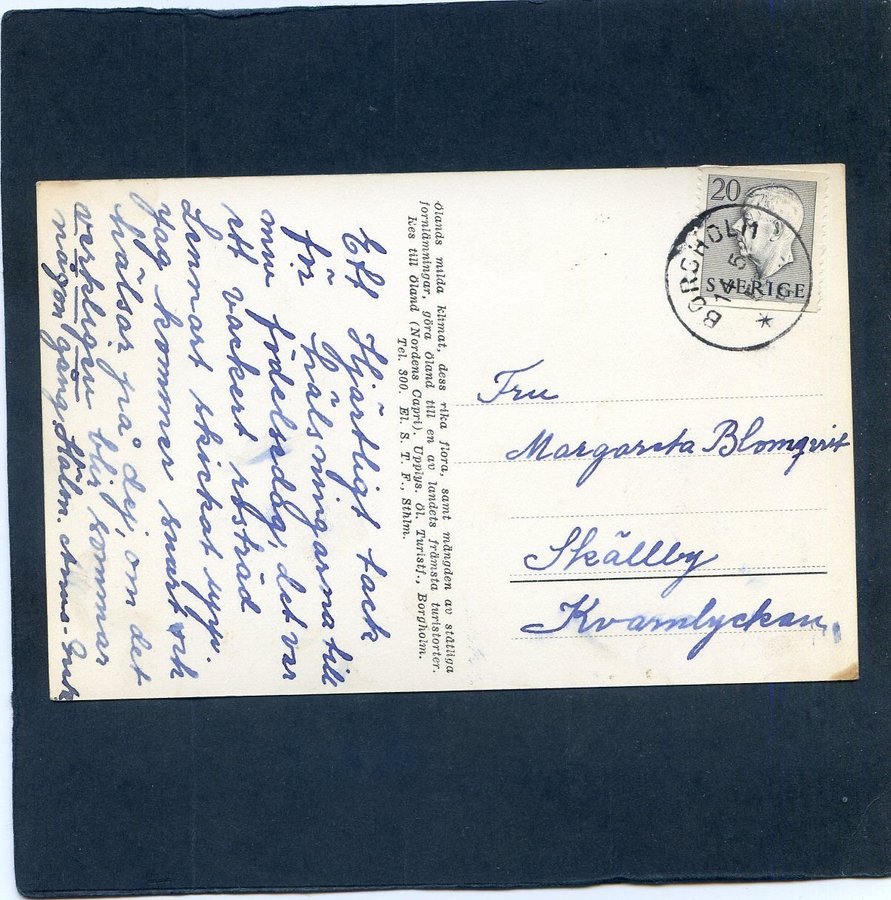 Ett Hjärtligt tack
för hälsningarna till
min födelsedag, det var
ett vackert
Lennart skickat upp.
Jag kommer snart och
hälsar på dej, om det
verkligen blir sommar
någon gång. Hälsn. Anna-
Ölands milda klimat, dess rika flora, samt mängden av ståtliga
fornlämningar, göra Öland till en av landets främsta turistorter.
Res till Öland (Nordens Capri). Upplys. Öl. Turistf., Borgholm.
Tel. 300. El. S. T. F., Sthlm.
20
SVERIGE
BORGHOLM
Fru
Margareta Blomqvist
Skällby
Kvarnlyckan